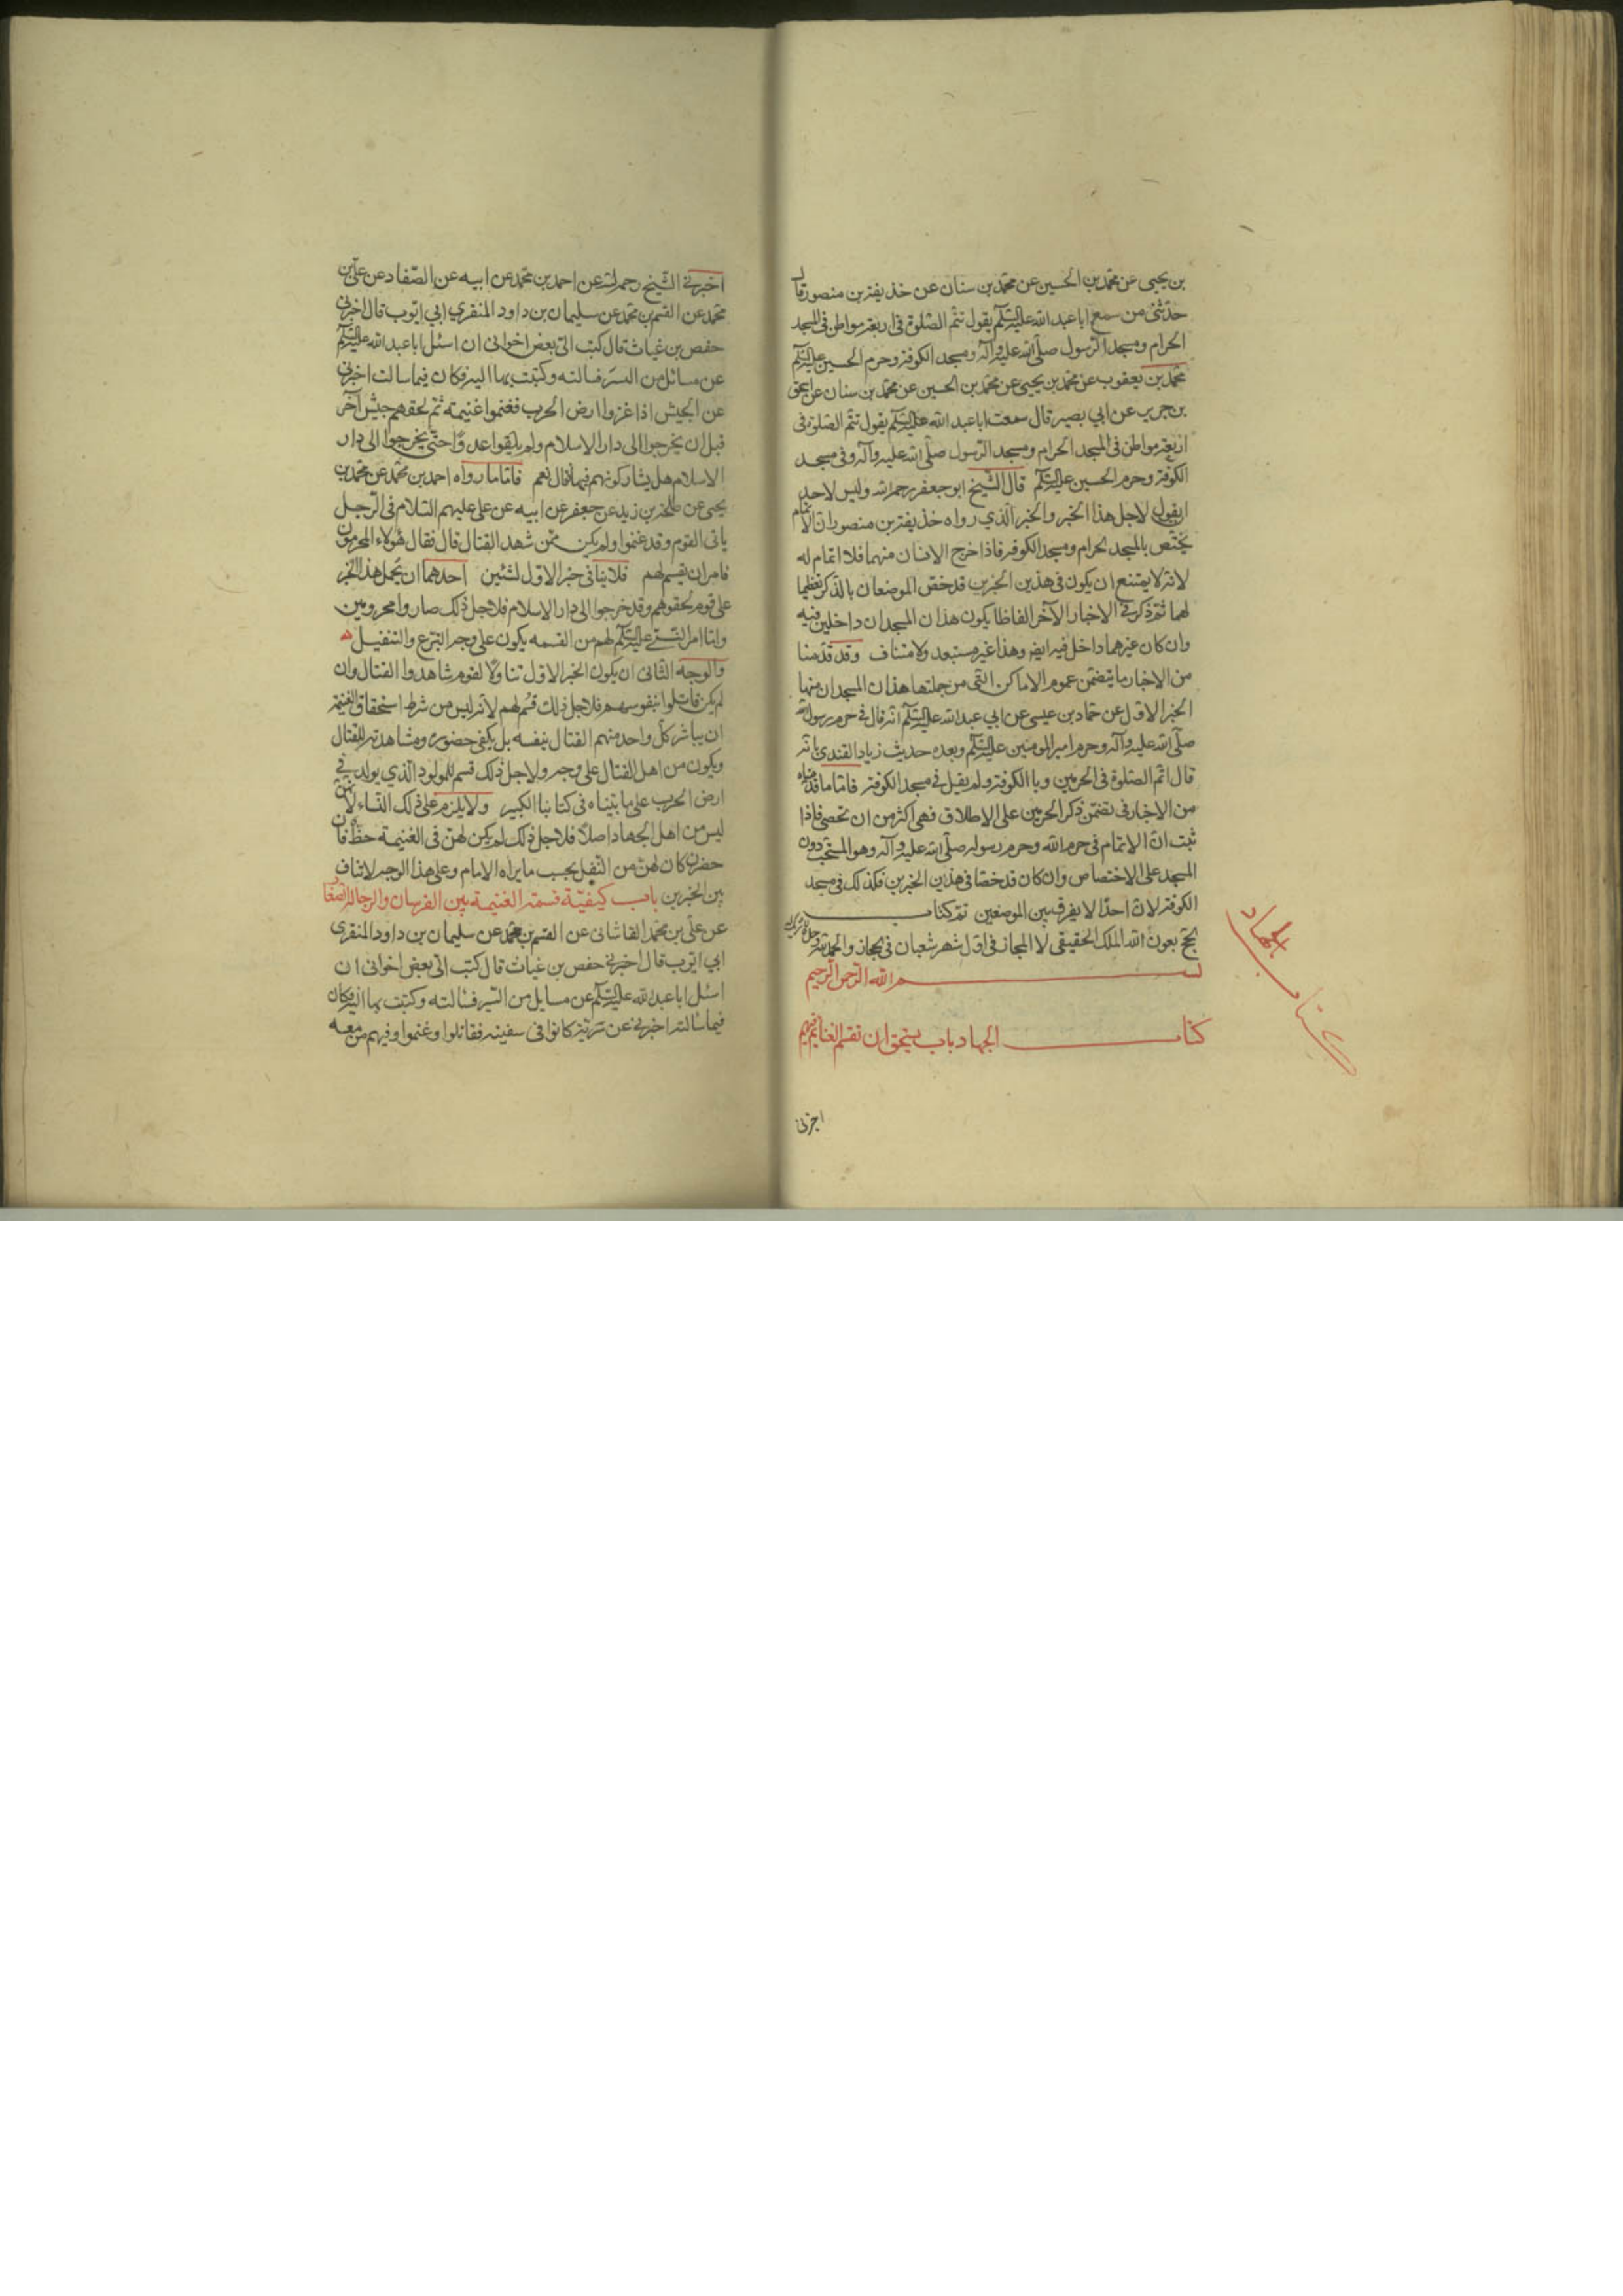 بن يحيى عن محمد بن الحسين عن محمد بن سنان عن حذيفة بن منصور قال
حدثني من سمع ابا عبد الله عليه السلام يقول تتم الصلوة في اربعة مواطن في المسجد
الحرام ومسجد الرسول صلى الله عليه وآله ومسجد الكوفة وحرم الحسين عليه السلام
محمد بن يعقوب عن محمد بن يحيى عن محمد بن الحسين عن محمد بن سنان عن اسحق
بن جرير عن ابي بصير قال سمعت ابا عبد الله عليه السلام يقول تتم الصلوة في
اربعة مواطن في المسجد الحرام ومسجد الرسول صلى الله عليه وآله وفي مسجد
الكوفة وحرم الحسين عليه السلام قال الشيخ ابو جعفر رحمه الله وليس لاحد
ان يقول لاجل هذا الخبر والخبر الذي رواه حذيفة بن منصور ان الاتمام
يختص بالمسجد الحرام ومسجد الكوفة فاذا خرج الانسان منهما فلا اتمام له
لانه لا يمتنع ان يكون في هذين الخبرين قد خص الموضعان بالذكر تعظيما
لهما ثم ذكر في الاخبار الآخر الفاظا يكون هذان المسجدان داخلين فيه
وان كان غيرهما داخل فيه ايض وهذا غير مستبعد ولا متناف وقد قدمنا
من الاخبار ما يتضمن عموم الاماكن التي من جملتها هذان المسجدان منها
الخبر الاول عن حماد بن عيسى عن ابي عبد الله عليه السلام انه قال في حرم رسول الله
صلى الله عليه وآله وحرم امير المومنين عليه السلام وبعده حديث زياد القندي انه
قال اتم الصلوة في الحرمين وبالكوفة ولم يقل في مسجد الكوفة فاما ما قدمناه
من الاخبار في تضمن ذكر الحرمين على الاطلاق فهي اكثر من ان تحصى فاذا
ثبت ان الاتمام في حرم الله وحرم رسوله صلى الله عليه وآله وهو المستحب دون
المسجد على الاختصاص وان كان قد خصا في هذين الخبرين فكذلك في مسجد
الكوفة لان احدا لا يفرق بين الموضعين تم كتاب
الحج بعون الله الملك الحقيقي لا المجاز في اول شهر شعبان في حجاز والحمد لله
بسم الله الرحمن الرحيم
كتاب الجهاد باب من يستحق ان تقسم الغنايم فيهم
كتاب الجهاد
اخبرني
اخبرني الشيخ رحمه الله عن احمد بن محمد عن ابيه عن الصفار عن علي بن
محمد عن القسم بن محمد عن سليمان بن داود المنقري ابي ايوب قال اخبرني
حفص بن غياث قال كتب الى بعض اخواني ان اسئل ابا عبد الله عليه السلام
عن مسائل من السير فسالته وكتبت بها اليه فكان فيما سالت اخبرني
عن الجيش اذا غزوا ارض الحرب فغنموا غنيمة ثم لحقهم جيش آخر
قبل ان يخرجوا الى دار الاسلام ولم يلقوا عدوا حتى يخرجوا الى دار
الاسلام هل يشاركونهم فيها قال نعم فاما ما رواه احمد بن محمد عن محمد بن
يحيى عن طلحة بن زيد عن جعفر عن ابيه عن علي عليهم السلام في الرجل
ياتي القوم وقد غنموا ولم يكن ممن شهد القتال قال فقال هؤلاء المحرمون
فامر ان يقسم لهم فلا ينافي خبر الاول لشيئين احدهما ان يحمل هذا الخبر
على قوم لحقوهم وقد خرجوا الى دار الاسلام فلاجل ذلك صاروا محرومين
وانما امر عليه السلام لهم من القسمه يكون على وجه التبرع والتنفيل
والوجه الثاني ان يكون الخبر الاول تناولا لقوم شاهدوا القتال وان
لم يكن قاتلوا بنفوسهم فلاجل ذلك قسم لهم لانه ليس من شرط استحقاق الغنيمة
ان يباشر كل واحد منهم القتال بنفسه بل يكفي حضوره ومشاهدته للقتال
ويكون من اهل القتال على وجه ولاجل ذلك قسم للمولود الذي يولد في
ارض الحرب على ما بيناه في كتابنا الكبير ولا يلزم على ذلك النساء لانهن
ليس من اهل الجهاد اصلا فلاجل ذلك لم يكن لهن في الغنيمة حظ فان
حضرن كان لهن من النفل بحسب ما يراه الامام وعلى هذا الوجه لا تناف
بين الخبرين باب كيفية قسمة الغنيمة بين الفرسان والرجالة الصفار
عن علي بن محمد القاشاني عن القسم بن محمد عن سليمان بن داود المنقري
ابي ايوب قال اخبرني حفص بن غياث قال كتب الى بعض اخواني ان
اسئل ابا عبد الله عليه السلام عن مسايل من السير فسالته وكتبت بها اليه فكان
فيما سالته اخبرني عن سرية كانوا في سفينه فقاتلوا وغنموا وفيهم من معه